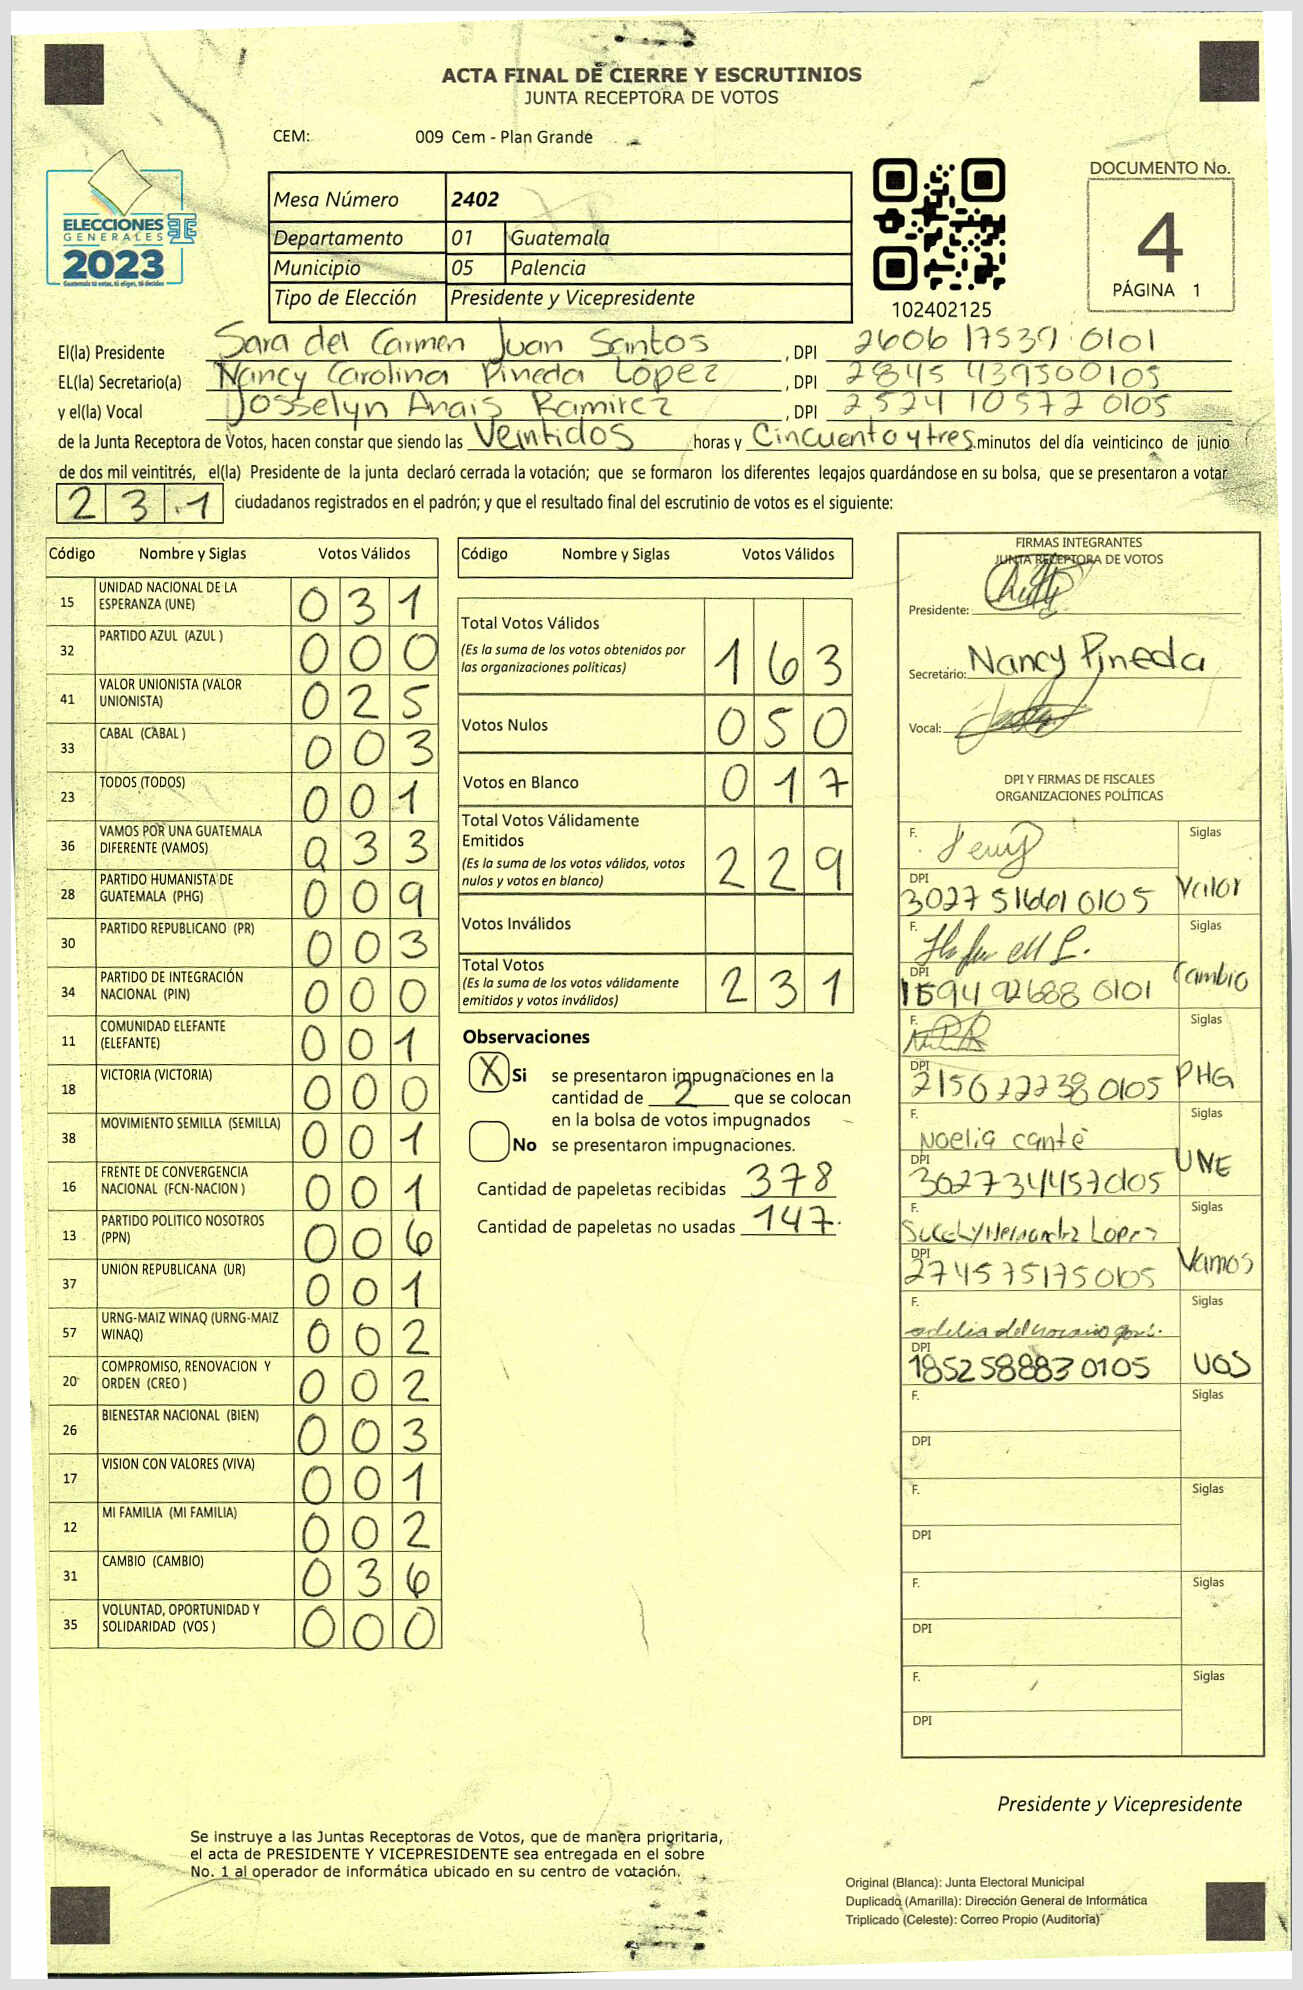 ACTA FINAL DE CIERRE Y ESCRUTINIOS
JUNTA RECEPTORA DE VOTOS
CEM: 009 Cem - Plan Grande
ELECCIONES
GENERALES
2023
Guatemala tú votas, tú eliges, tú decides
Mesa Número 2402
Departamento 01 Guatemala
Municipio 05 Palencia
Tipo de Elección Presidente y Vicepresidente
102402125
DOCUMENTO No.
4
PÁGINA 1
El(la) Presidente Sara del Carmen Juan Santos , DPI 2606 17539 0101
EL(la) Secretario(a) Nancy Carolina Pineda López , DPI 2845 43950 0105
y el(la) Vocal Josselyn Anais Ramirez , DPI 2524 10572 0105
de la Junta Receptora de Votos, hacen constar que siendo las Veintidos horas y Cincuenta y tres minutos del día veinticinco de junio
de dos mil veintitrés, el(la) Presidente de la junta declaró cerrada la votación; que se formaron los diferentes legajos quardándose en su bolsa, que se presentaron a votar
231 ciudadanos registrados en el padrón; y que el resultado final del escrutinio de votos es el siguiente:
Código Nombre y Siglas Votos Válidos
15 UNIDAD NACIONAL DE LA ESPERANZA (UNE) 031
32 PARTIDO AZUL (AZUL ) 000
41 VALOR UNIONISTA (VALOR UNIONISTA) 025
33 CABAL (CABAL ) 003
23 TODOS (TODOS) 001
36 VAMOS POR UNA GUATEMALA DIFERENTE (VAMOS) 033
28 PARTIDO HUMANISTA DE GUATEMALA (PHG) 009
30 PARTIDO REPUBLICANO (PR) 003
34 PARTIDO DE INTEGRACIÓN NACIONAL (PIN) 000
11 COMUNIDAD ELEFANTE (ELEFANTE) 001
18 VICTORIA (VICTORIA) 000
38 MOVIMIENTO SEMILLA (SEMILLA) 001
16 FRENTE DE CONVERGENCIA NACIONAL (FCN-NACION ) 001
13 PARTIDO POLITICO NOSOTROS (PPN) 006
37 UNION REPUBLICANA (UR) 001
57 URNG-MAIZ WINAQ (URNG-MAIZ WINAQ) 002
20 COMPROMISO, RENOVACION Y ORDEN (CREO ) 002
26 BIENESTAR NACIONAL (BIEN) 003
17 VISION CON VALORES (VIVA) 001
12 MI FAMILIA (MI FAMILIA) 002
31 CAMBIO (CAMBIO) 036
35 VOLUNTAD, OPORTUNIDAD Y SOLIDARIDAD (VOS ) 000
Código Nombre y Siglas Votos Válidos
Total Votos Válidos 163
(Es la suma de los votos obtenidos por
las organizaciones políticas)
Votos Nulos 050
Votos en Blanco 017
Total Votos Válidamente
Emitidos 229
(Es la suma de los votos válidos, votos
nulos y votos en blanco)
Votos Inválidos
Total Votos 231
(Es la suma de los votos válidamente
emitidos y votos inválidos)
Observaciones
X Si se presentaron impugnaciones en la
cantidad de 2 que se colocan
en la bolsa de votos impugnados
No se presentaron impugnaciones.
Cantidad de papeletas recibidas 378
Cantidad de papeletas no usadas 147
FIRMAS INTEGRANTES
JUNTA RECEPTORA DE VOTOS
Presidente:
Secretario: Nancy Pineda
Vocal:
DPI Y FIRMAS DE FISCALES
ORGANIZACIONES POLÍTICAS
F. Siglas
DPI 3027 51661 0105 Valor
F. Siglas
DPI 1594 92688 0101 Cambio
F. Siglas
DPI 2150 22238 0105 PHG
F. Noelia canté Siglas
DPI 3027344570105 UNE
F. Lopez Siglas
DPI 2745751750105 Vamos
F. Siglas
DPI 1852588830105 VOS
F. Siglas
DPI
F. Siglas
DPI
F. Siglas
DPI
F. Siglas
DPI
Presidente y Vicepresidente
Se instruye a las Juntas Receptoras de Votos, que de manera prioritaria,
el acta de PRESIDENTE Y VICEPRESIDENTE sea entregada en el sobre
No. 1 al operador de informática ubicado en su centro de votación.
Original (Blanca): Junta Electoral Municipal
Duplicado (Amarilla): Dirección General de Informática
Triplicado (Celeste): Correo Propio (Auditoría)